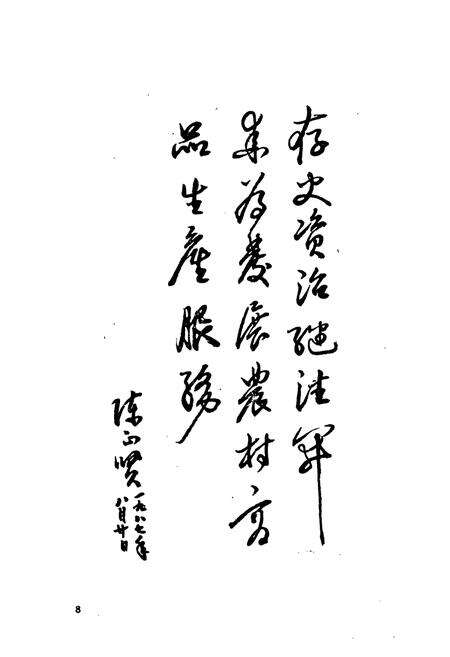 存史资治继往开
来为發展農村商
品生産服務
陈正贤
一九八七年
八月廿日
8